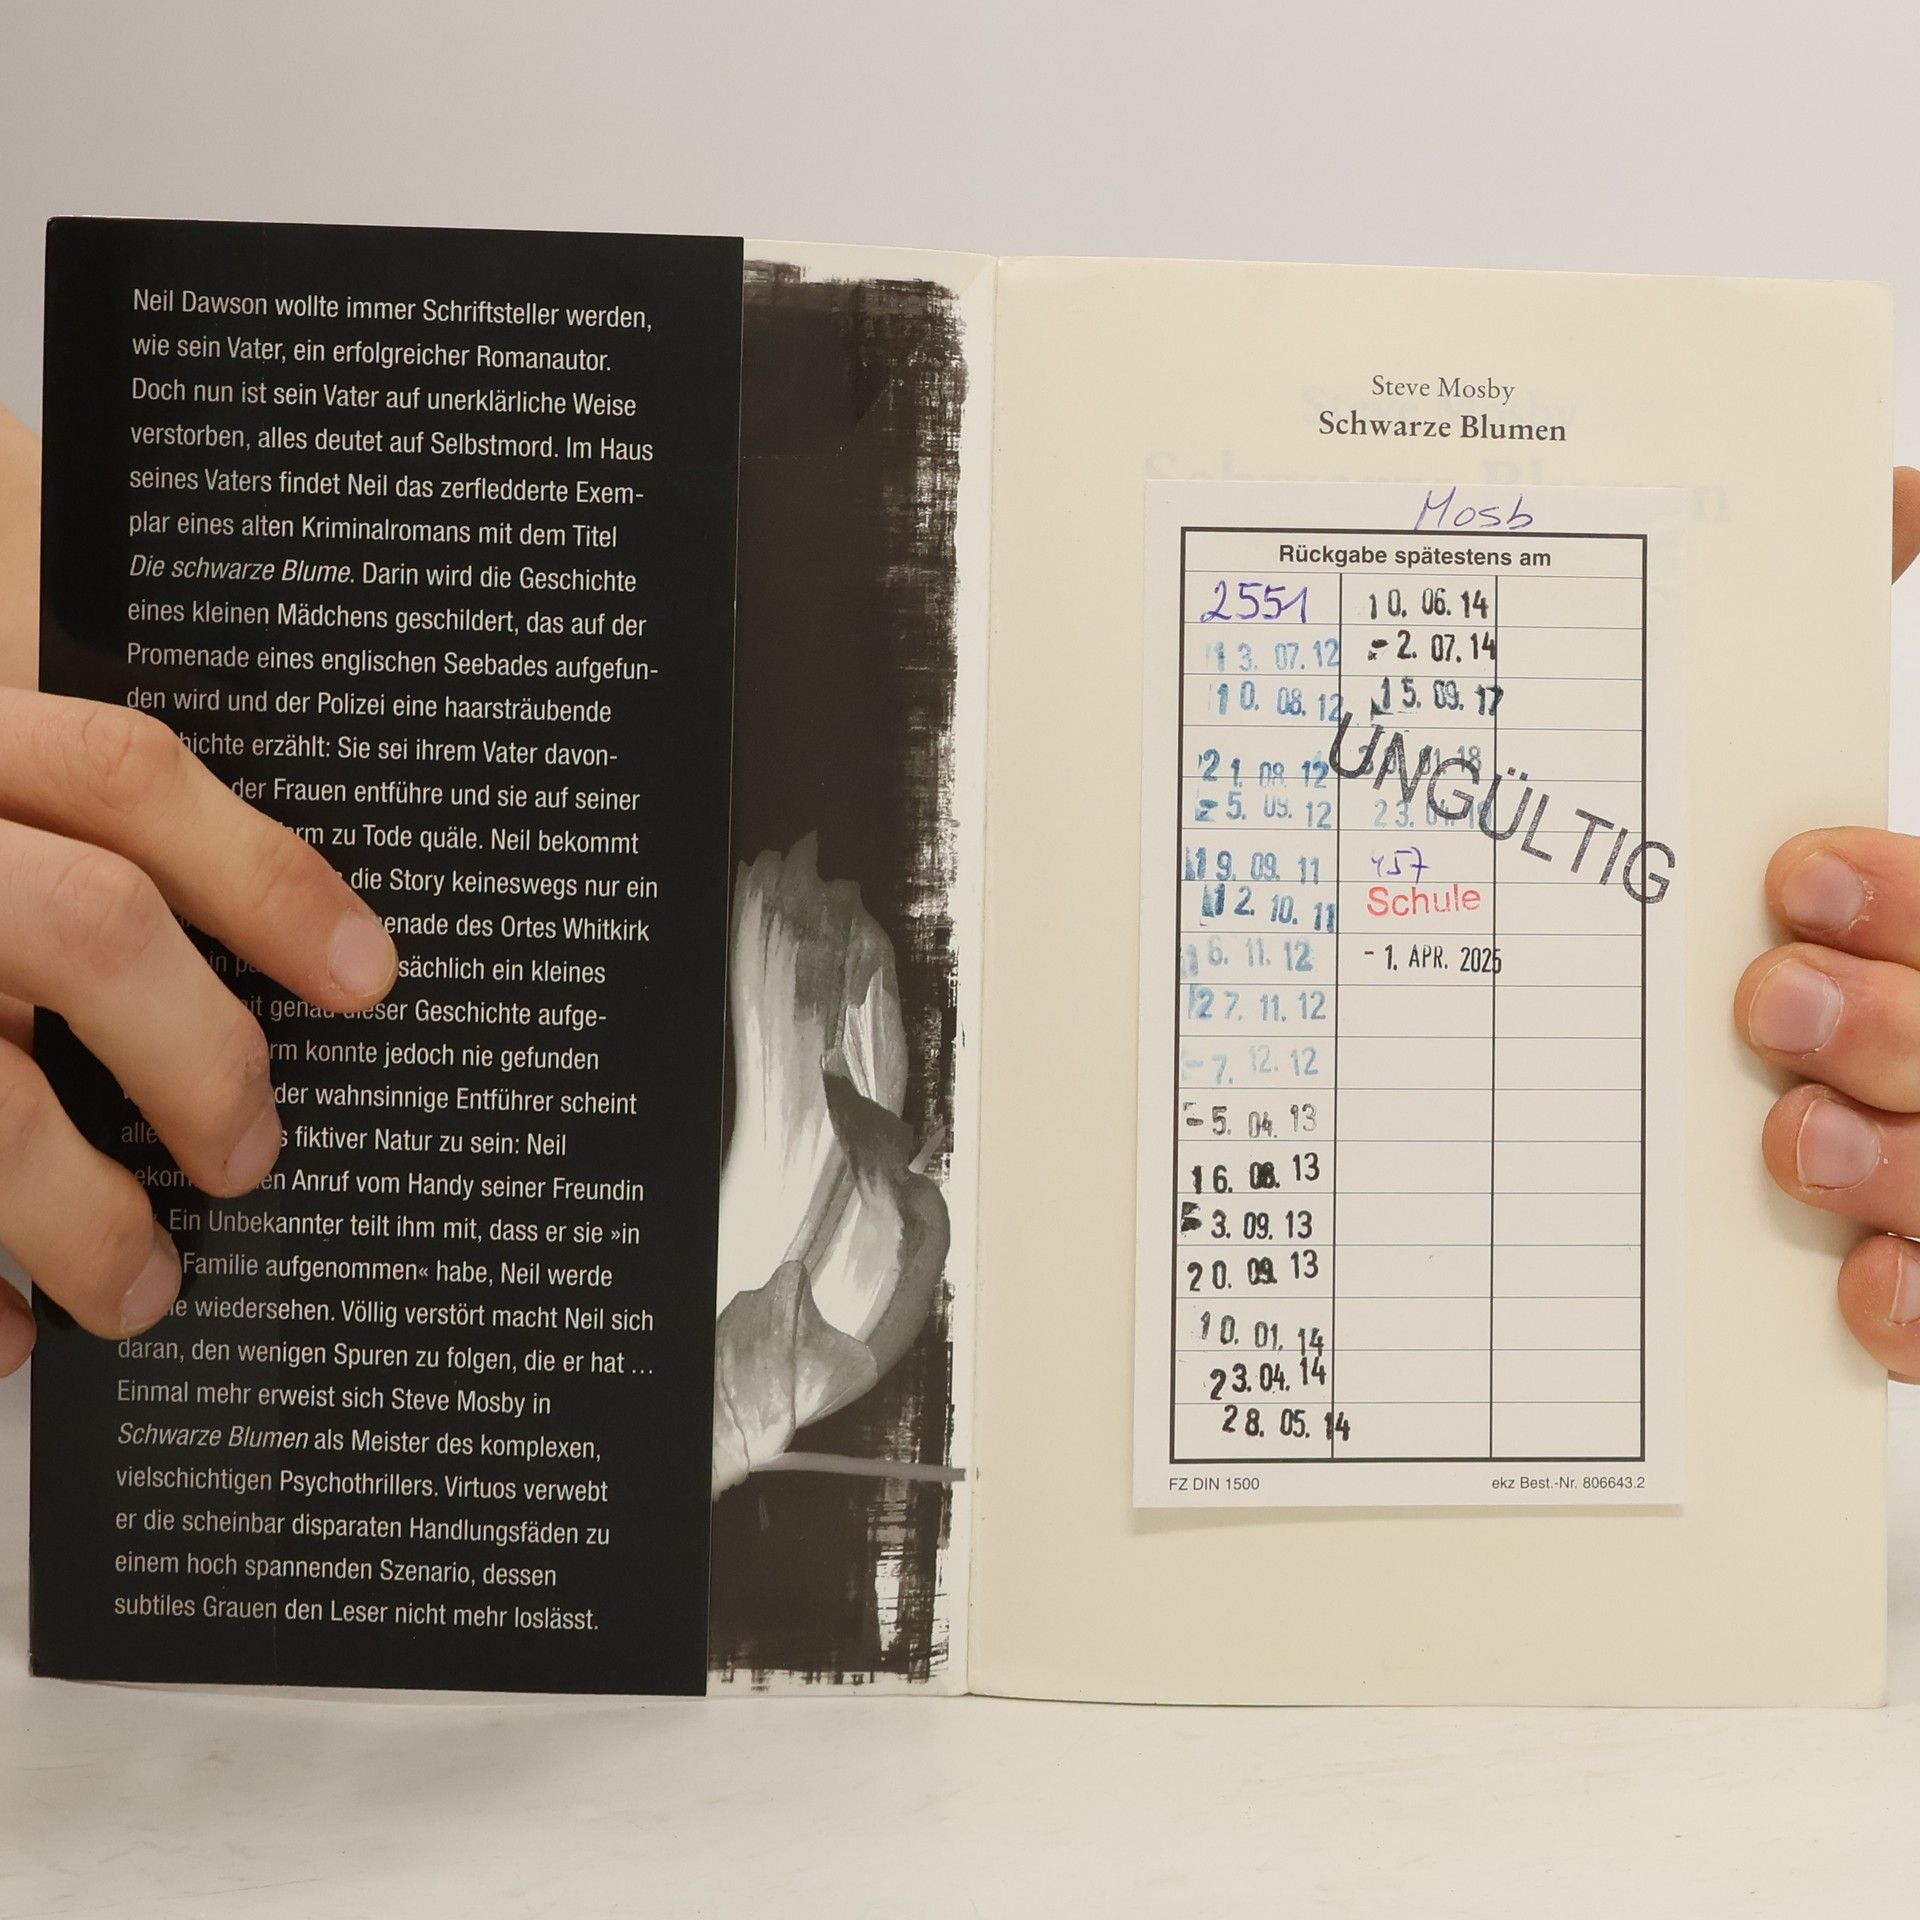 Neil Dawson wollte immer Schriftsteller werden,
wie sein Vater, ein erfolgreicher Romanautor.
Doch nun ist sein Vater auf unerklärliche Weise
verstorben, alles deutet auf Selbstmord. Im Haus
seines Vaters findet Neil das zerfledderte Exem-
plar eines alten Kriminalromans mit dem Titel
Die schwarze Blume. Darin wird die Geschichte
eines kleinen Mädchens geschildert, das auf der
Promenade eines englischen Seebades aufgefun-
den wird und der Polizei eine haarsträubende
erzählt: Sie sei ihrem Vater davon-
der Frauen entführe und sie auf seiner
zu Tode quäle. Neil bekommt
die Story keineswegs nur ein
des Ortes Whitkirk
ein kleines
genau dieser Geschichte aufge-
konnte jedoch nie gefunden
der wahnsinnige Entführer scheint
fiktiver Natur zu sein: Neil
Anruf vom Handy seiner Freundin
Ein Unbekannter teilt ihm mit, dass er sie »in
Familie aufgenommen« habe, Neil werde
wiedersehen. Völlig verstört macht Neil sich
daran, den wenigen Spuren zu folgen, die er hat ...
Einmal mehr erweist sich Steve Mosby in
Schwarze Blumen als Meister des komplexen,
vielschichtigen Psychothrillers. Virtuos verwebt
er die scheinbar disparaten Handlungsfäden zu
einem hoch spannenden Szenario, dessen
subtiles Grauen den Leser nicht mehr loslässt.
Steve Mosby
Schwarze Blumen
Mosb
Rückgabe spätestens am
2551
13. 07. 12
10. 08. 12
21. 08. 12
- 5. 09. 12
19. 09. 11
12. 10. 11
6. 11. 12
27. 11. 12
- 7. 12. 12
- 5. 04. 13
16. 08. 13
3. 09. 13
20. 09. 13
10. 01. 14
23. 04. 14
28. 05. 14
10. 06. 14
- 2. 07. 14
15. 09. 17
UNGÜLTIG
457
Schule
- 1. APR. 2025
FZ DIN 1500
ekz Best.-Nr. 806643.2